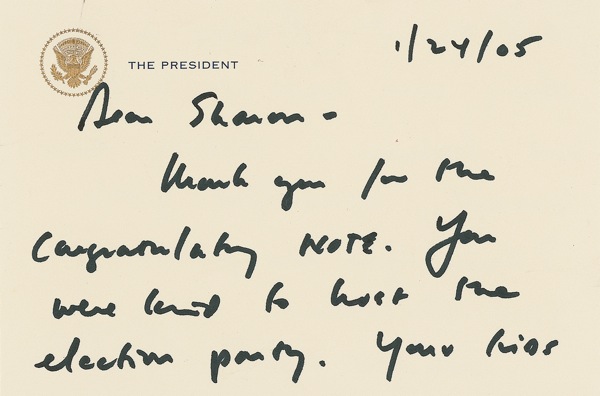 THE PRESIDENT
1/24/05
Dear Sharon -
Thank you for the
congratulatory NOTE. You
were kind to host the
election party. Your kids